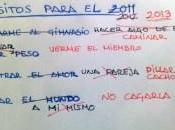 SITOS PARA EL 2011
2012 2013
ARME AL GIMNASIO HACER ALGO DE E
CAMINAR
R PESO VERME EL MIEMBRO
TRAR EL AMOR UNA PAREJA PILLAR
CACHO
AR EL MUNDO NO CAGARLA
A MÍ MISMO